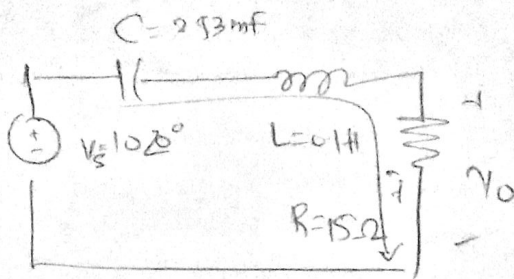 C = 293mF
Vs=10∠0°
L=0.1H
R=15Ω
i
+
Vo
-